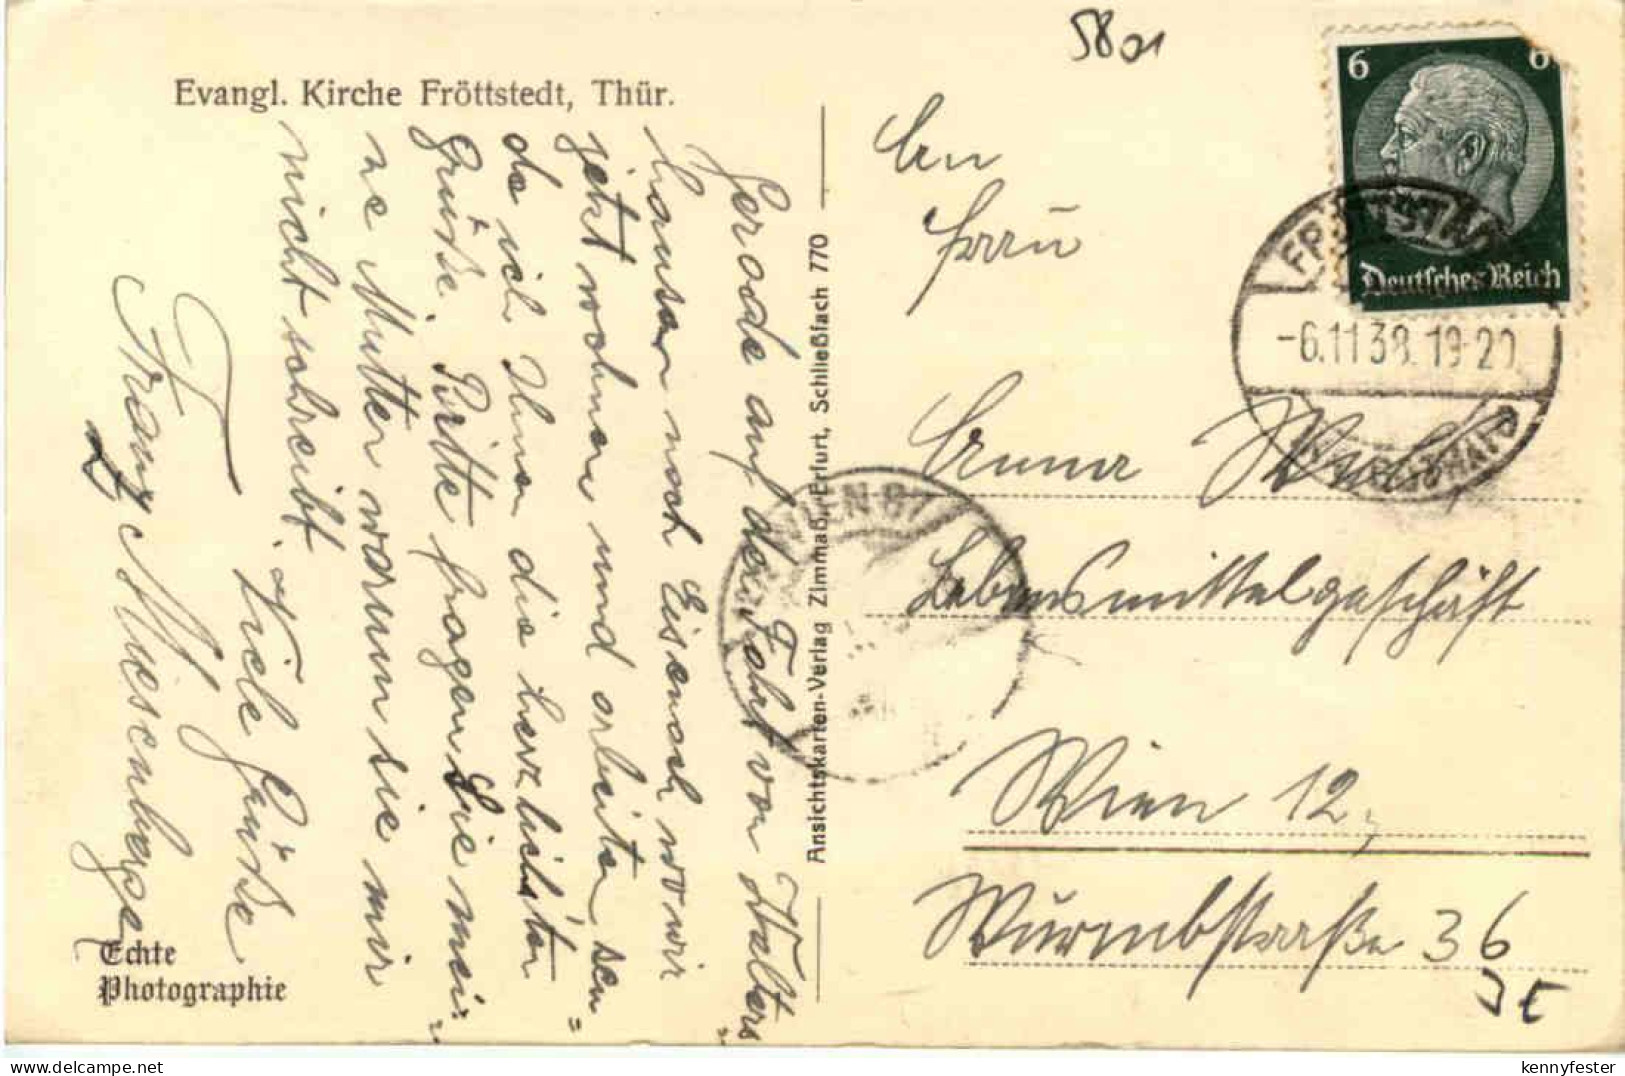 5801
Evangl. Kirche Fröttstedt, Thür.
Gerade auf der Fahrt von Walters-
hausen nach Eisenach, wo wir
jetzt wohnen und arbeiten sen=
de ich Ihnen die herzlichsten
Grüße. Bitte fragen Sie mei-
ne Mutter warum sie mir
nicht schreibt.
Viele Grüße
Franz Miesenberger
Echte
Photographie
Ansichtskarten-Verlag Zimmaß, Erfurt, Schließfach 770
6 6
Deutsches Reich
-6.11.38.19-20
WIEN
An
Frau
Lebensmittelgeschäft
Wien 12,
Wurmbstraße 36
JE
kennyfester